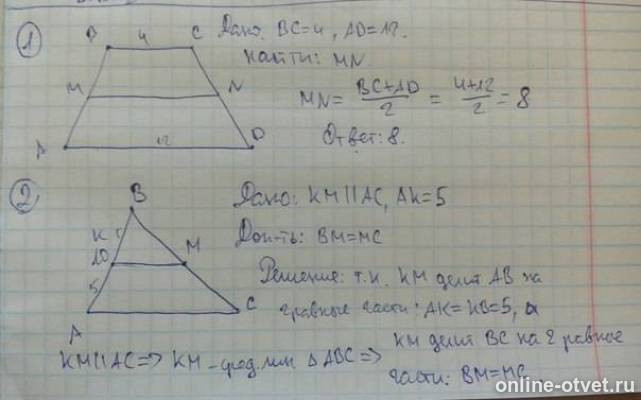 1
B 4 C
Дано: BC=4, AD=12.
Найти: MN
M N
MN = BC+AD / 2 = 4+12 / 2 = 8
A 12 D
Ответ: 8.
2
B
Дано: KM||AC, AK=5
K 5 M
10
Док-ть: BM=MC
5
Решение: т.к. KM делит AB на
A C
2 равные части: AK=KB=5, а
KM||AC=> KM - сред. лин. △ABC=> KM делит BC на 2 равные
части: BM=MC
online-otvet.ru